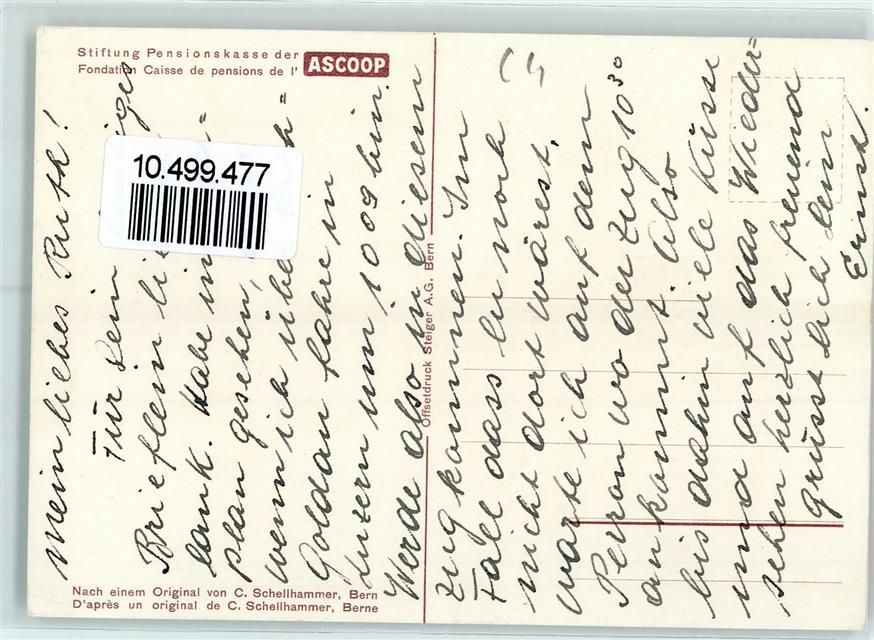 Stiftung Pensionskasse der
Fondation Caisse de pensions de l'
ASCOOP
10.499.477
Mein liebes Ruth!
Für Dein
Brieflein
Dank. Habe im
plan gesehen,
wenn ich über
Goldau fahre in
Luzern um 10 09 bin.
Werde also in diesem
Zug kommen. Im
Fall dass Du noch
nicht dort wärest,
warte ich auf dem
Perron wo der Zug 10 30
ankommt. Also
bis dahin viele Küsse
und auf das Wieder=
sehen herzlich freuend
grüsst Dich Dein
Ernst.
Offsetdruck Steiger A.G. Bern
Nach einem Original von C. Schellhammer, Bern
D'après un original de C. Schellhammer, Berne